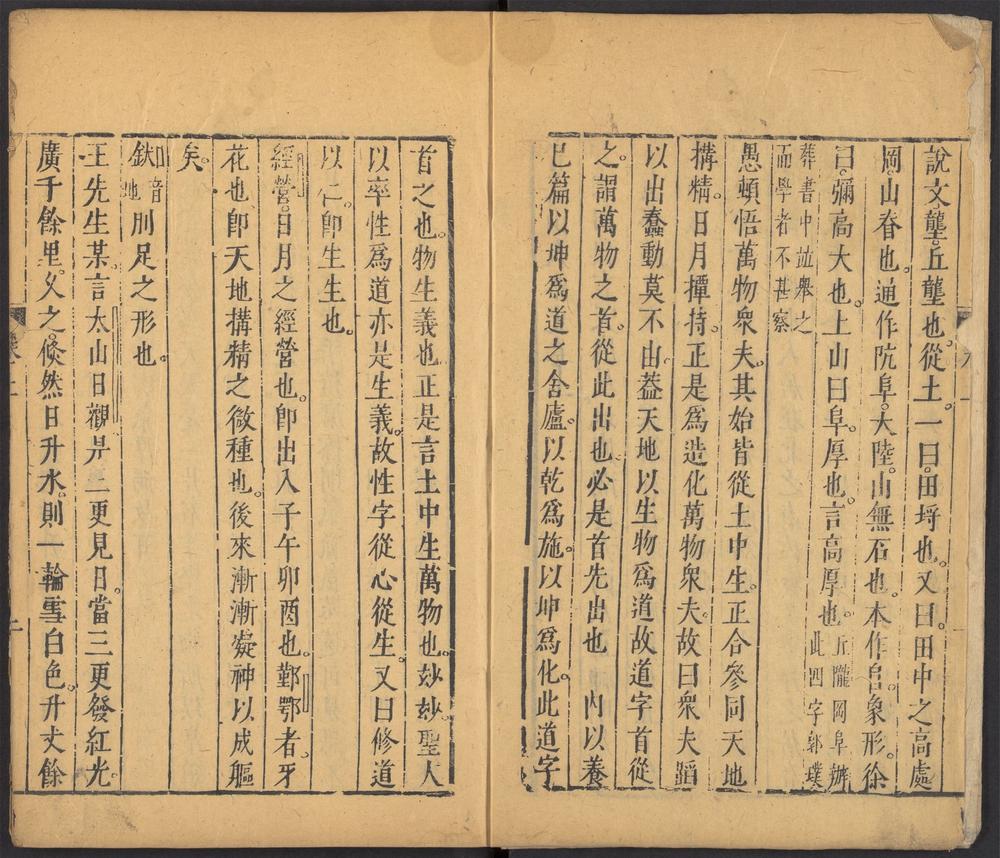 說文壟。丘壟也。從土。一曰。田埓也。又曰。田中之高處
岡。山脊也。通作阬阜。大陸。山無石也。本作𨸏。象形。徐
曰。彌高大也。上山曰阜。厚也。言高厚也。丘隴岡阜辦
此四字郭璞
葬書中竝舉之
而學者不甚察
愚頓悟萬物衆夫。其始皆從土中生。正合參同天地
搆精。日月撢持。正是爲造化萬物衆夫。故曰衆夫蹈
以出蠢動莫不由。葢天地以生物爲道故道字首從
之。謂萬物之首。從此出也。必是首先出也 內以養
已篇以坤爲道之舍廬。以乾爲施。以坤爲化。此道字
首之也。物生義也。正是言土中生萬物也。玅玅。聖人
以率性爲道亦是生義。故性字從心從生。又曰修道
以仁。卽生生也。
經營。日月之經營也。卽出入子午卯酉也。鄞鄂者。牙
花也卽天地搆精之微種也。後來漸漸凝神以成軀
矣。
釱音地 刖足之形也。
王先生某。言太山日觀。𣅜二更見日。當三更發紅光。
廣千餘里。乂之。倏然日升水。則一輪雪白色。升丈餘